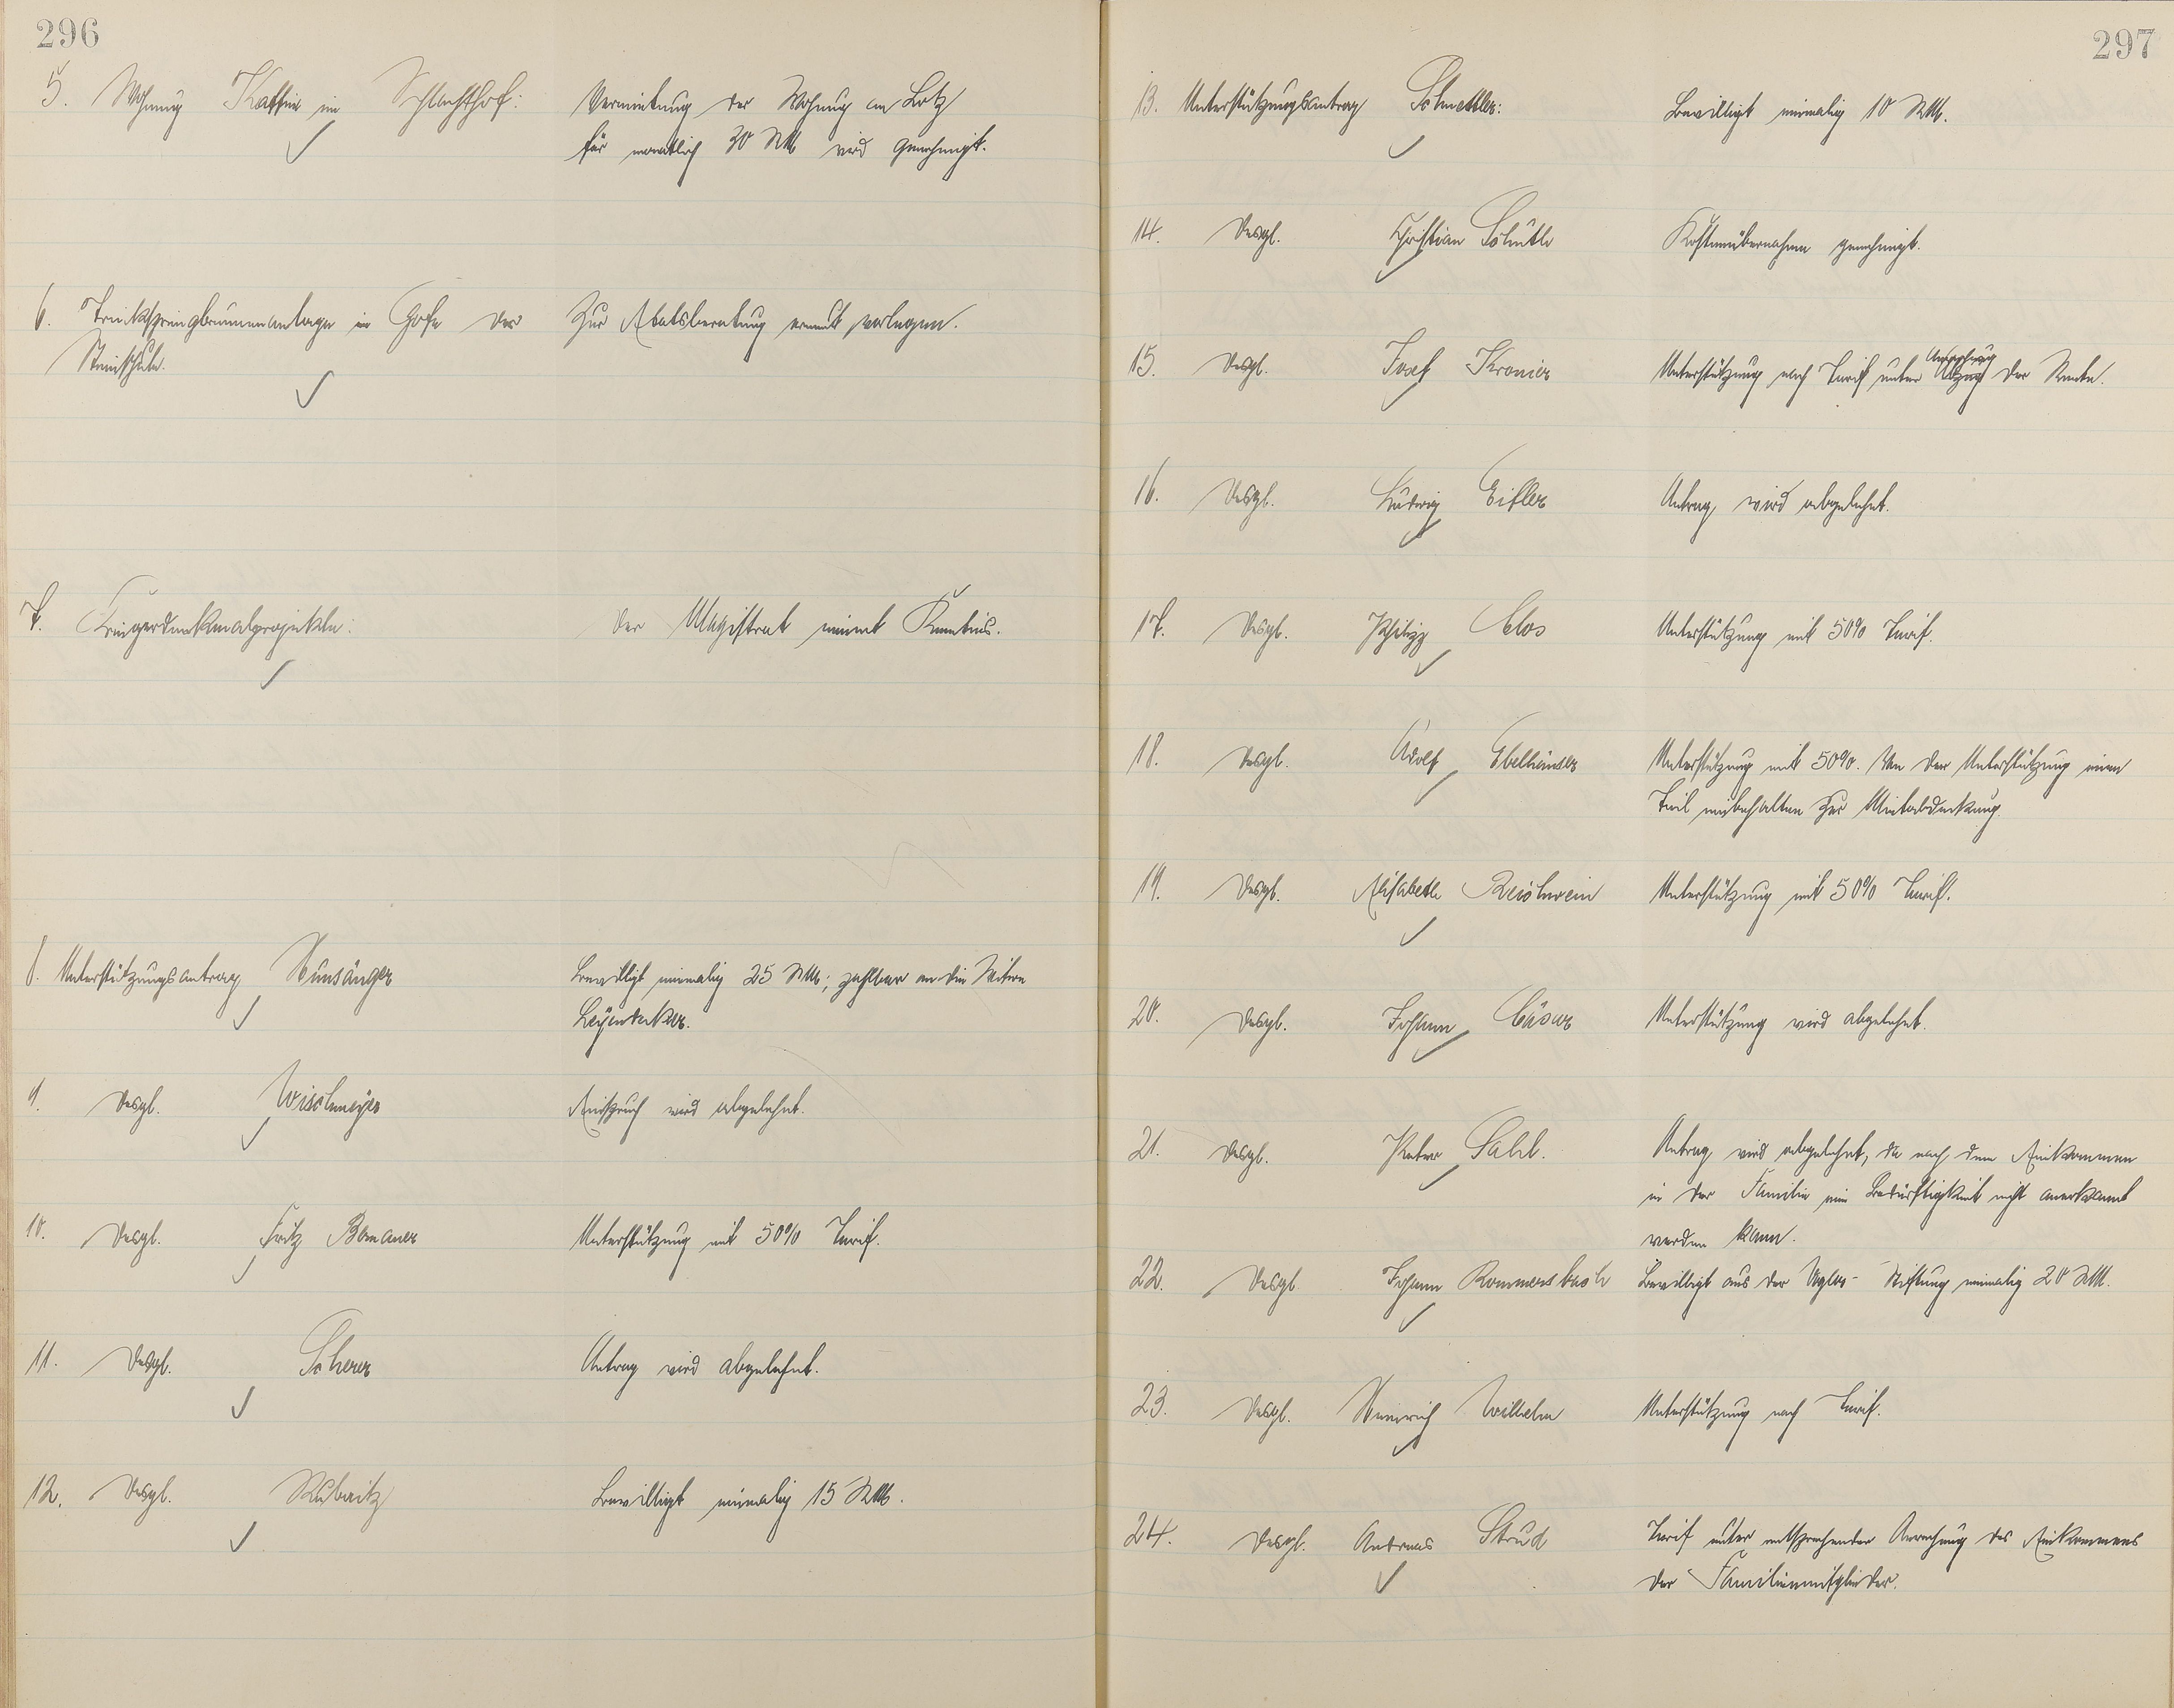 296
5. Wohnung Kathrin im Schlachthof:
Vermietung der Wohnung an Lotz
für monatlich 30 RM wird genehmigt.
6. Trinkspringbrunnenanlage im Hofe der
Steinschule.
Zur Etatsberatung erneut vorlegen.
7. Kriegerdenkmalprojekte:
Der Magistrat nimmt Kenntnis.
8. Unterstützungsantrag Hunsänger
Bewilligt einmalig 25 RM; zahlbar an die Witwe
Leyendecker.
9. Desgl. Wischmeyer
Einspruch wird abgelehnt.
10. Desgl. Fritz Bomauer
Unterstützung mit 50% Tarif.
11. Desgl. Scherer
Antrag wird abgelehnt.
12. Desgl.
Bewilligt einmalig 15 RM.
297
13. Unterstützungsantrag Schmettler:
Bewilligt einmalig 10 RM.
14. Desgl. Christian Schütle
Kostenübernahme genehmigt.
15. Desgl. Josef Kronier
Anrechnung
Unterstützung nach Tarif unter Abzug der Rente.
16. Desgl. Ludwig Eifler
Antrag wird abgelehnt.
17. Desgl. Philipp Clos
Unterstützung mit 50% Tarif.
18. Desgl. Adolf Ebelhäuser
Unterstützung mit 50%. Von der Unterstützung einen
Teil einbehalten zur Mietabdeckung.
19. Desgl. Elisabeth Reichwein
Unterstützung mit 50% Tarif.
20. Desgl. Johann Cäsar
Unterstützung wird abgelehnt.
21. Desgl. Peter Sahl.
Antrag wird abgelehnt, da nach dem Einkommen
in der Familie eine Bedürftigkeit nicht anerkannt
werden kann.
22. Desgl. Johann Rommersbach
Bewilligt aus der Stiftung einmalig 20 RM.
23. Desgl. Heinrich Wilhelm
Unterstützung nach Tarif.
24. Desgl. Andreas Strud
Tarif unter entsprechender Anrechnung des Einkommens
der Familienmitglieder.